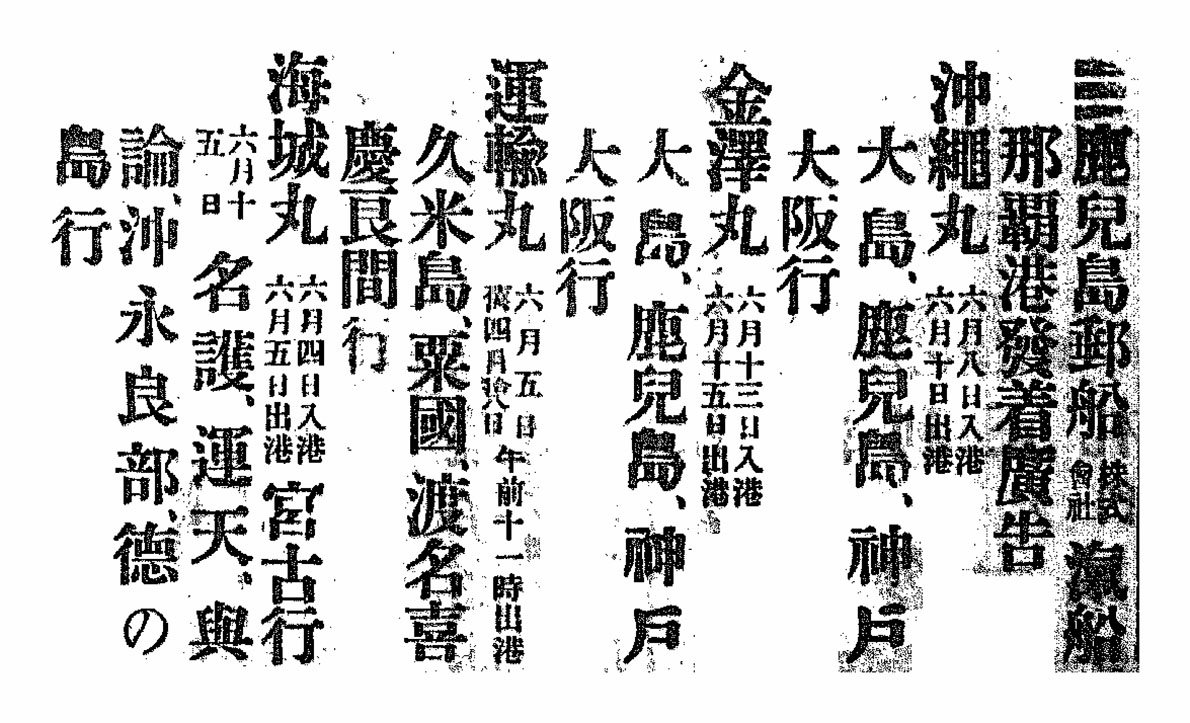 三鹿兒島郵船株式會社滊船
那覇港發着廣告
沖繩丸 六月八日入港
六月十日出港
大島、鹿兒島、神戸
大阪行
金澤丸 六月十三日入港
六月十五日出港
大島、鹿兒島、神戸
大阪行
運輸丸 六月五日
四月拾八日
午前十一時出港
久米島、粟國、渡名喜
慶良間行
海城丸 六月四日入港
六月五日出港
宮古行
六月十
五日
名護、運天、與
論、沖永良部、德の
島行